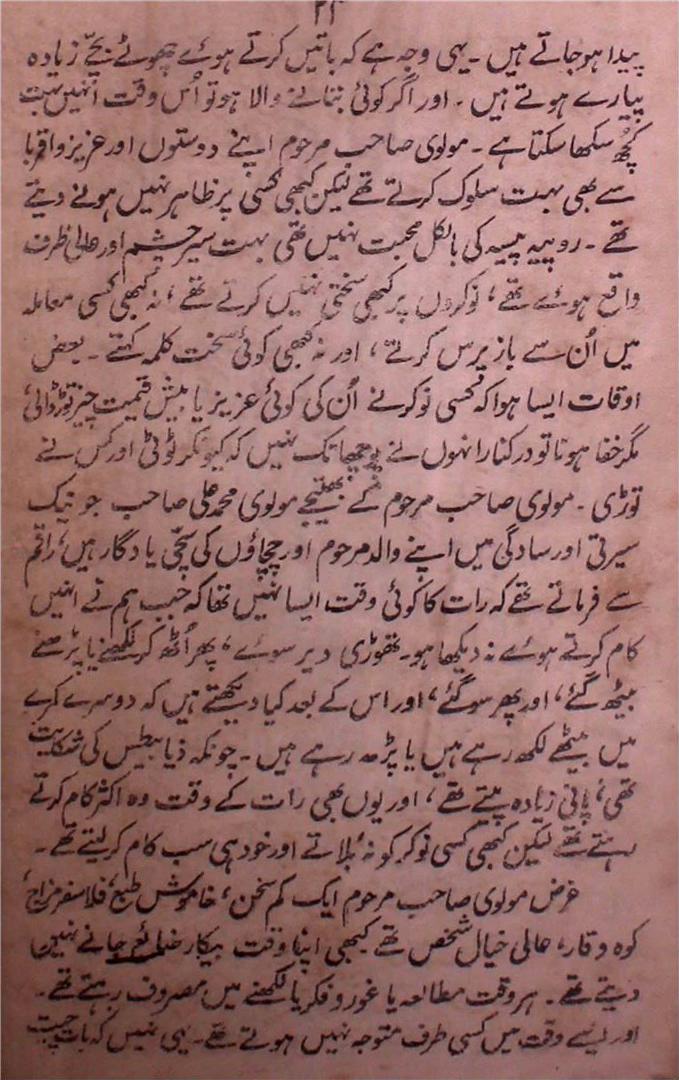 ۲۴
پیدا ہو جاتے ہیں ۔ یہی وجہ ہے کہ باتیں کرتے ہوئے چھوٹے بچّے زیادہ
پیارے ہوتے ہیں ۔ اور اگر کوئی بتانے والا ہو تو اُس وقت انہیں بہت
کچھ سکھا سکتا ہے ۔ مولوی صاحب مرحوم اپنے دوستوں اور عزیز و اقربا
سے بھی بہت سلوک کرتے تھے لیکن کبھی کسی پر ظاہر نہیں ہونے دیتے
تھے ۔ روپیہ پیسہ کی بالکل محبت نہیں تھی بہت سیر چشم اور عالی ظرف
واقع ہوئے تھے، نوکروں پر کبھی سختی نہیں کرتے تھے، نہ کبھی کسی معاملہ
میں اُن سے باز پرس کرتے، اور نہ کبھی کوئی سخت کلمہ کہتے ۔ بعض
اوقات ایسا ہوا کہ کسی نوکر نے اُن کی کوئی عزیز یا بیش قیمت چیز توڑ ڈالی
مگر خفا ہونا تو درکنار انہوں نے پوچھا تک نہیں کہ کیونکر ٹوٹی اور کس نے
توڑی ۔ مولوی صاحب مرحوم کے بھتیجے مولوی محمد علی صاحب جو نیک
سیرتی اور سادگی میں اپنے والد مرحوم اور چچاؤں کی سچّی یادگار ہیں، راقم
سے فرماتے تھے کہ رات کا کوئی وقت ایسا نہیں تھا کہ جب ہم نے انہیں
کام کرتے ہوئے نہ دیکھا ہو ۔ تھوڑی دیر سوئے، پھر اُٹھ کر لکھنے یا پڑھنے
بیٹھ گئے، اور پھر سو گئے، اور اس کے بعد کیا دیکھتے ہیں کہ دوسرے کمرے
میں بیٹھے لکھ رہے ہیں یا پڑھ رہے ہیں ۔ چونکہ ذیابیطس کی شکایت
تھی، پانی زیادہ پیتے تھے، اور یوں بھی رات کے وقت وہ اکثر کام کرتے
رہتے تھے لیکن کبھی کسی نوکر کو نہ بلاتے اور خود ہی سب کام کر لیتے تھے ۔
غرض مولوی صاحب مرحوم ایک کم سخن، خاموش طبع، فلاسفر مزاج،
کوہ وقار، عالی خیال شخص تھے کبھی اپنا وقت بیکار ضائع جانے نہیں
دیتے تھے ۔ ہر وقت مطالعہ یا غور و فکر یا لکھنے میں مصروف رہتے تھے ۔
اور ایسے وقت میں کسی طرف متوجہ نہیں ہوتے تھے ۔ یہی نہیں کہ بات چیت